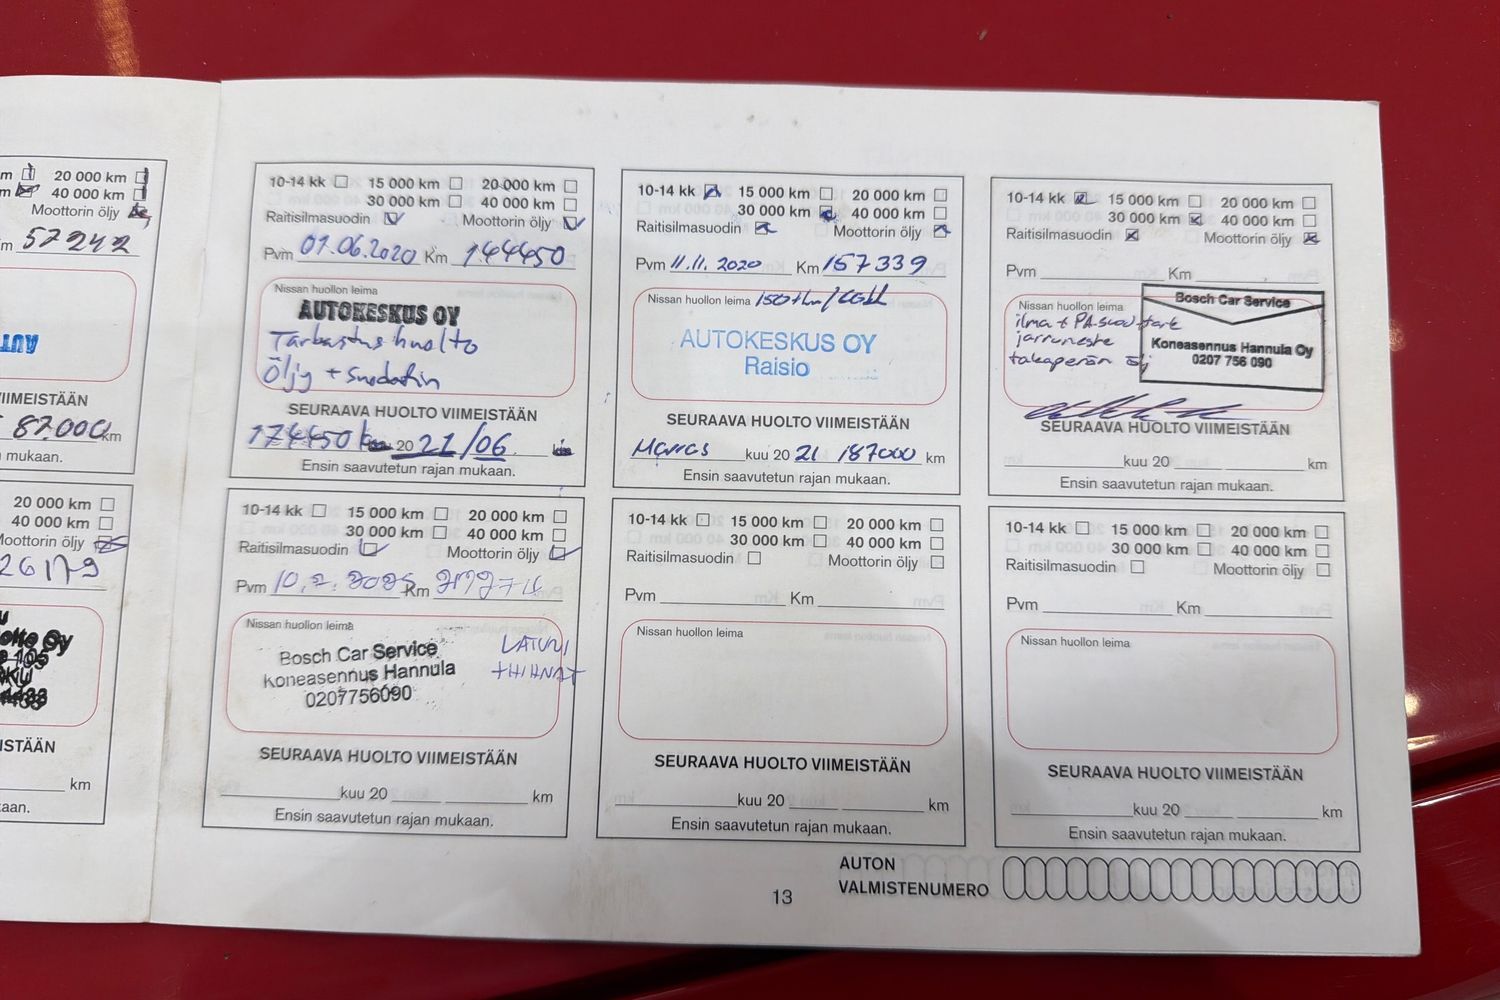 20 000 km
40 000 km
Moottorin öljy
57242
87.000 km
mukaan.
20 000 km
40 000 km
Moottorin öljy
26179
km
10-14 kk 15 000 km 20 000 km
30 000 km 40 000 km
Raitisilmasuodin Moottorin öljy
Pvm 01.06.2020 Km 144450
Nissan huollon leima
AUTOKESKUS OY
Tarkastus huolto
Öljy + Suodatin
SEURAAVA HUOLTO VIIMEISTÄÄN
174450 km 20 21/06
Ensin saavutetun rajan mukaan.
10-14 kk 15 000 km 20 000 km
30 000 km 40 000 km
Raitisilmasuodin Moottorin öljy
Pvm 11.11.2020 Km 157339
Nissan huollon leima
AUTOKESKUS OY
Raisio
SEURAAVA HUOLTO VIIMEISTÄÄN
Marras kuu 20 21 187000 km
Ensin saavutetun rajan mukaan.
10-14 kk 15 000 km 20 000 km
30 000 km 40 000 km
Raitisilmasuodin Moottorin öljy
Pvm Km
Nissan huollon leima
Bosch Car Service
Koneasennus Hannula Oy
0207 756 090
ilma + PA-suod tark
jarruneste
takaperän öj
SEURAAVA HUOLTO VIIMEISTÄÄN
kuu 20 km
Ensin saavutetun rajan mukaan.
10-14 kk 15 000 km 20 000 km
30 000 km 40 000 km
Raitisilmasuodin Moottorin öljy
Pvm Km
Nissan huollon leima
Bosch Car Service
Koneasennus Hannula
0207756090
SEURAAVA HUOLTO VIIMEISTÄÄN
kuu 20 km
Ensin saavutetun rajan mukaan.
10-14 kk 15 000 km 20 000 km
30 000 km 40 000 km
Raitisilmasuodin Moottorin öljy
Pvm Km
Nissan huollon leima
SEURAAVA HUOLTO VIIMEISTÄÄN
kuu 20 km
Ensin saavutetun rajan mukaan.
10-14 kk 15 000 km 20 000 km
30 000 km 40 000 km
Raitisilmasuodin Moottorin öljy
Pvm Km
Nissan huollon leima
SEURAAVA HUOLTO VIIMEISTÄÄN
kuu 20 km
Ensin saavutetun rajan mukaan.
13
AUTON
VALMISTENUMERO